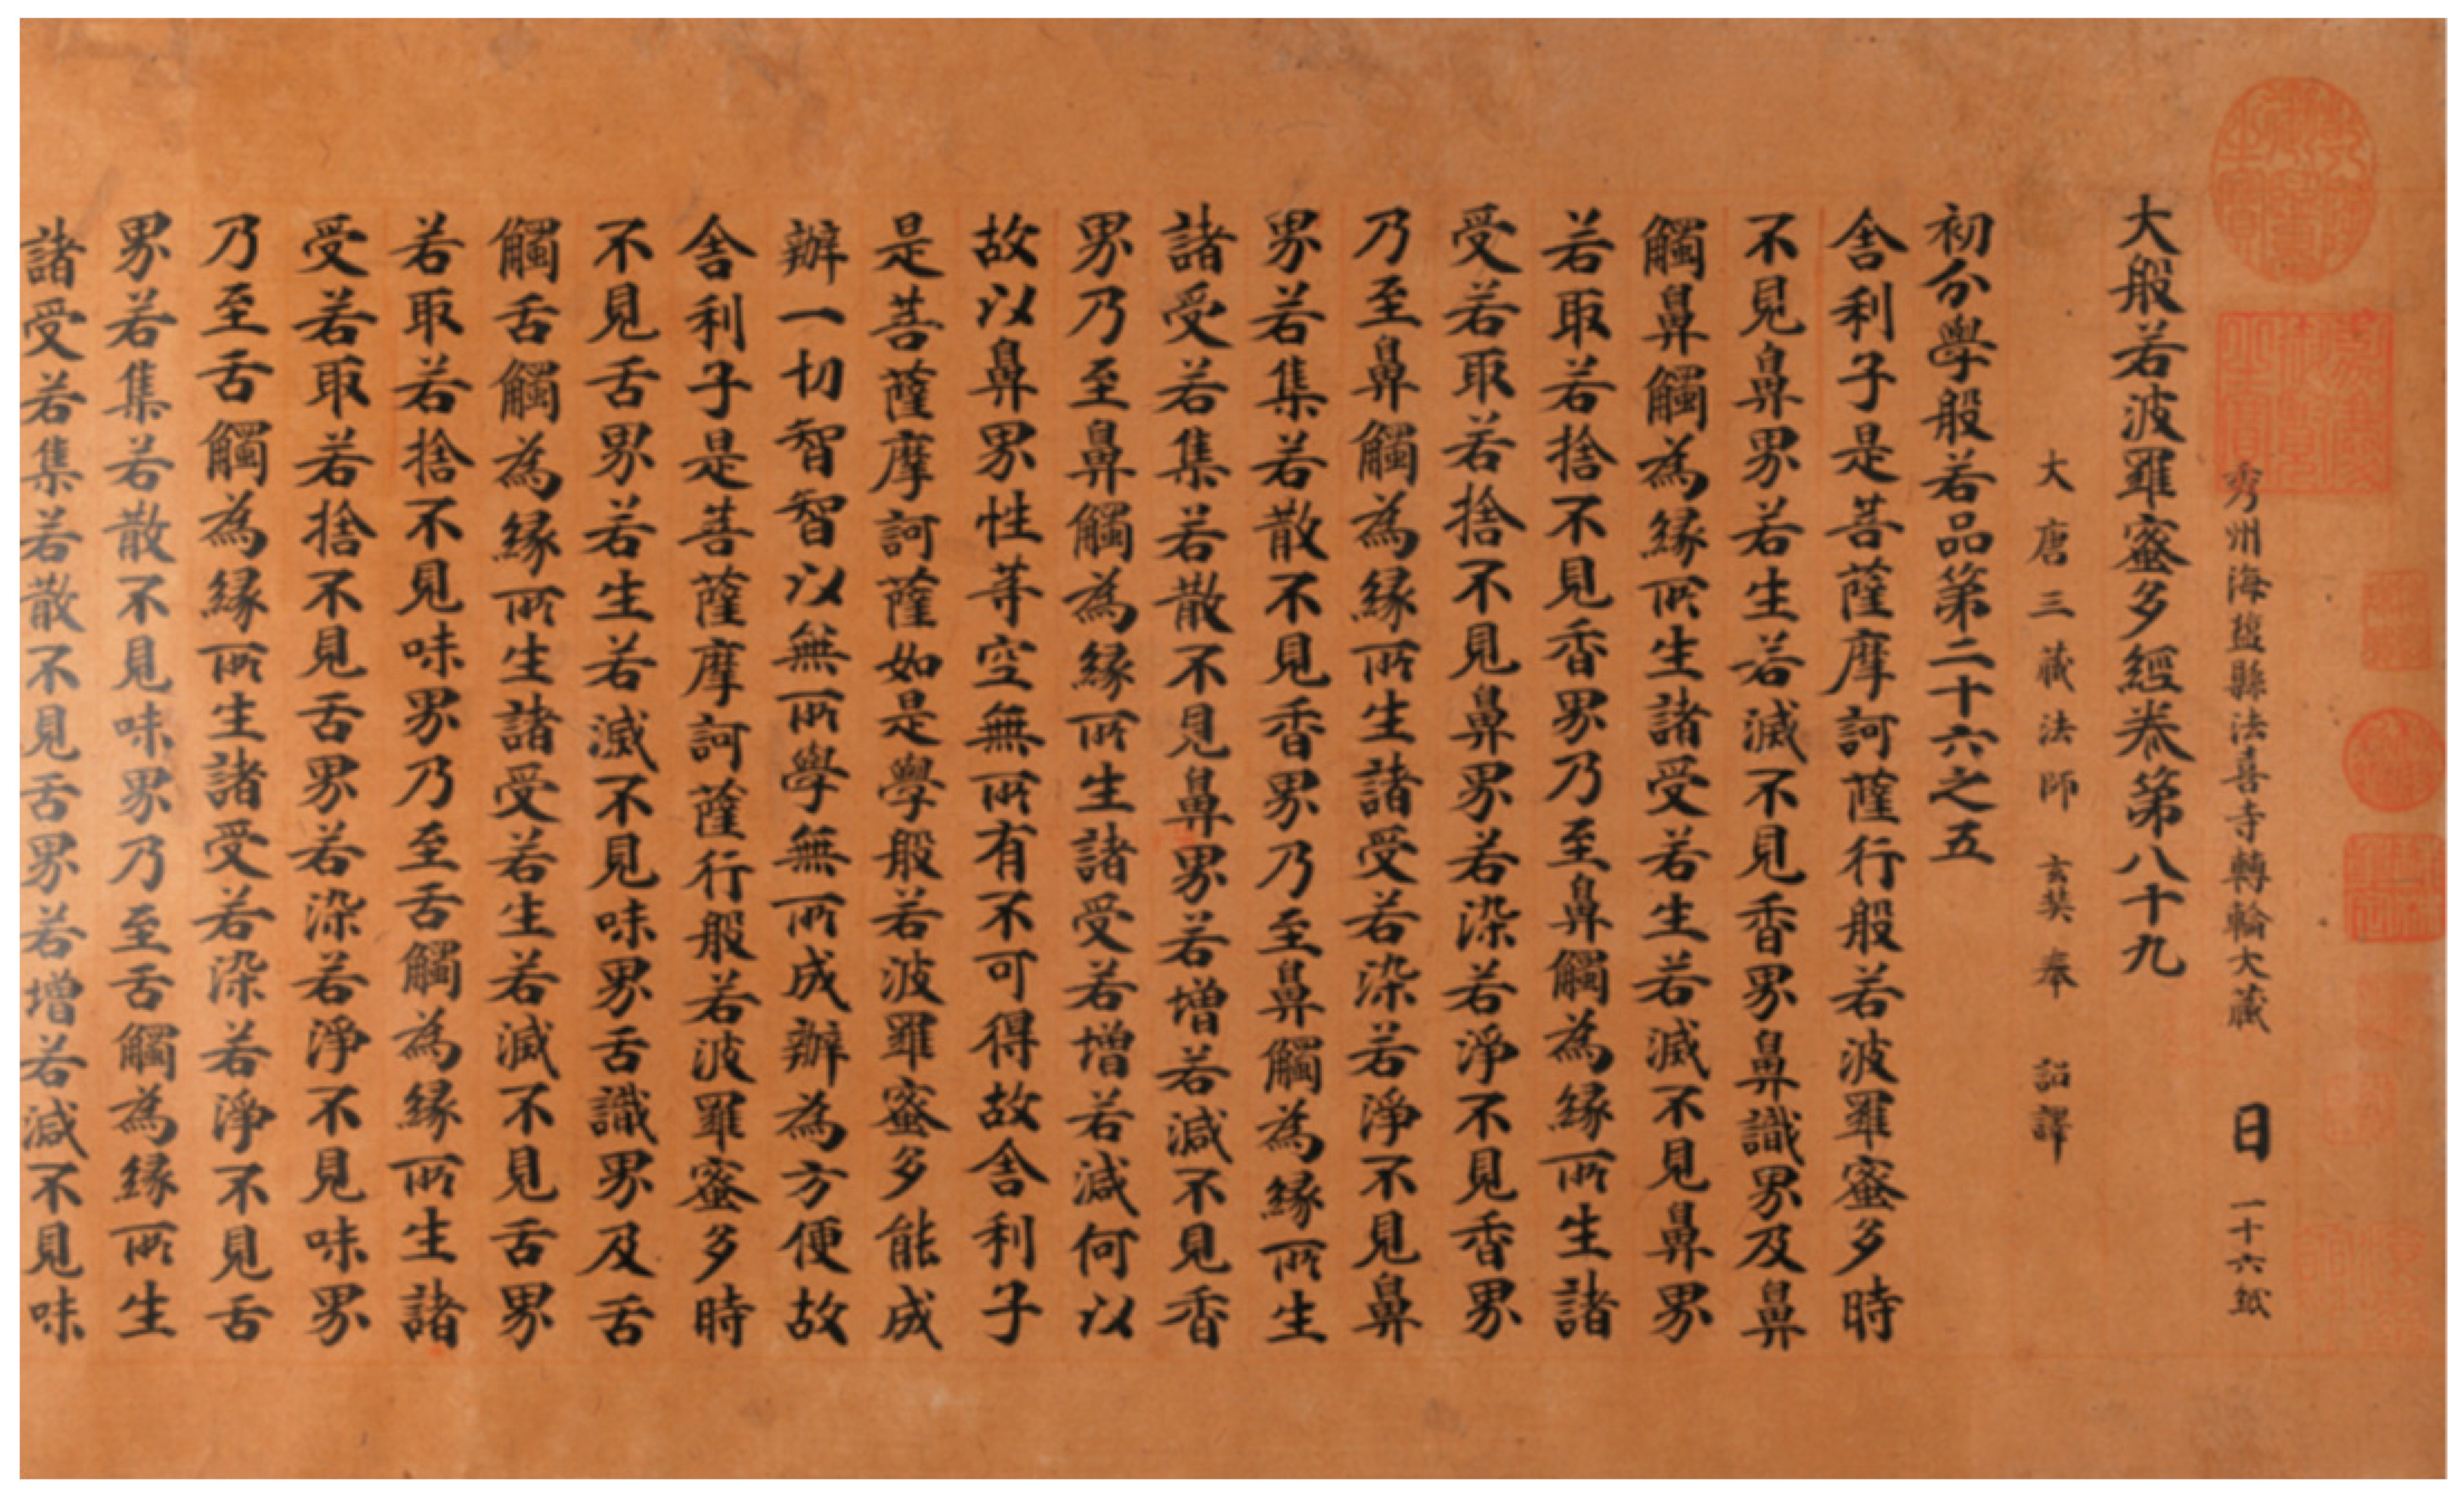 秀州海鹽縣法喜寺轉輪大藏 日 一十六紙
大般若波羅蜜多經卷第八十九
大唐三藏法師 玄奘奉 詔譯
初分學般若品第二十六之五
舍利子是菩薩摩訶薩行般若波羅蜜多時
不見鼻界若生若滅不見香界鼻識界及鼻
觸鼻觸為緣所生諸受若生若滅不見鼻界
若取若捨不見香界乃至鼻觸為緣所生諸
受若取若捨不見鼻界若染若淨不見香界
乃至鼻觸為緣所生諸受若染若淨不見鼻
界若集若散不見香界乃至鼻觸為緣所生
諸受若集若散不見鼻界若增若減不見香
界乃至鼻觸為緣所生諸受若增若減何以
故以鼻界性等空無所有不可得故舍利子
是菩薩摩訶薩如是學般若波羅蜜多能成
辦一切智智以無所學無所成辦為方便故
舍利子是菩薩摩訶薩行般若波羅蜜多時
不見舌界若生若滅不見味界舌識界及舌
觸舌觸為緣所生諸受若生若滅不見舌界
若取若捨不見味界乃至舌觸為緣所生諸
受若取若捨不見舌界若染若淨不見味界
乃至舌觸為緣所生諸受若染若淨不見舌
界若集若散不見味界乃至舌觸為緣所生
諸受若集若散不見舌界若增若減不見味